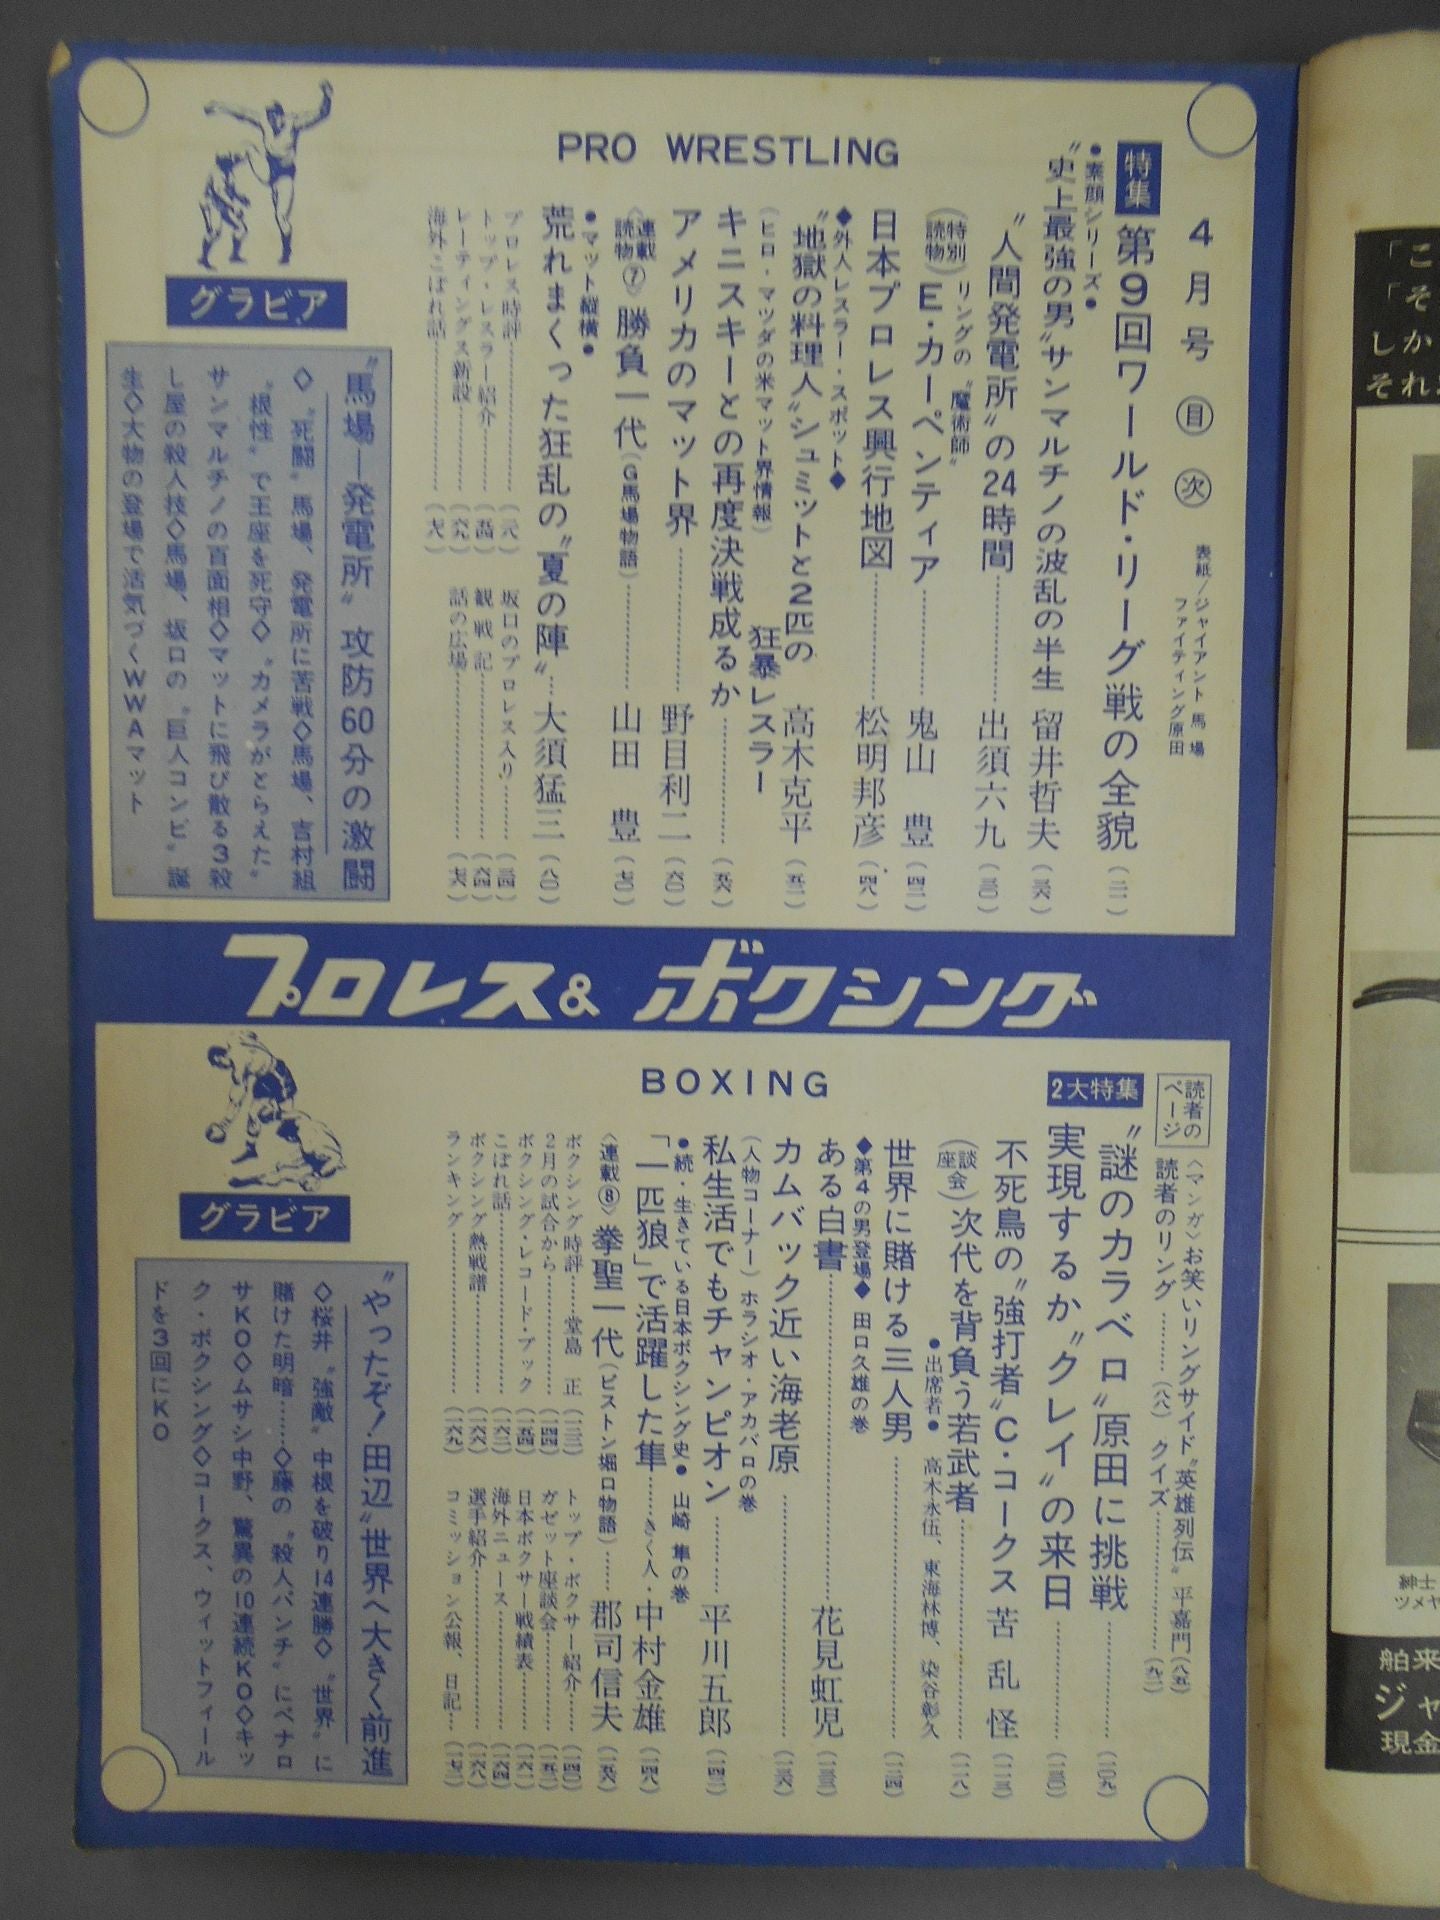 4月号 目次
表紙/ジャイアント馬場
ファイティング原田
PRO WRESTLING
特集
第9回ワールド・リーグ戦の全貌
●素顔シリーズ●
“史上最強の男”サンマルチノの波乱の半生 留井哲夫 (三六)
“人間発電所”の24時間 出須六九 (三〇)
(特別読物) リングの“魔術師”
E・カーペンティア 鬼山 豊 (四二)
日本プロレス興行地図 松明邦彦 (四八)
◆外人レスラー・スポット◆
“地獄の料理人”シュミットと2匹の
狂暴レスラー 高木克平 (五二)
(ヒロ・マツダの米マット界情報)
キニスキーとの再度決戦成るか (五六)
アメリカのマット界 野目利二 (六〇)
〈連載読物⑦〉 勝負一代 (G馬場物語) 山田 豊 (七〇)
●マット縦横●
荒れまくった狂乱の“夏の陣” 大須猛三 (八〇)
プロレス時評
坂口のプロレス入り (三四)
トップ・レスラー紹介 (五四)
観戦記 (六四)
レーティングス新設
話の広場 (七六)
海外こぼれ話
グラビア
“馬場―発電所”攻防60分の激闘
◇“死闘”馬場、発電所に苦戦◇馬場、吉村組
“根性”で王座を死守◇“カメラがとらえた”
サンマルチノの百面相◇マットに飛び散る3殺
し屋の殺人技◇馬場、坂口の“巨人コンビ”誕
生◇大物の登場で活気づくWWAマット
プロレス&ボクシング
読者のページ
〈マンガ〉お笑いリングサイド“英雄列伝” 平嘉門 (八五)
読者のリング (八八) クイズ (九二)
BOXING
2大特集
“謎のカラベロ”原田に挑戦 (一〇九)
実現するか“クレイ”の来日 (一三〇)
不死鳥の“強打者”C・コークス 苦乱怪 (一一三)
(座談会) 次代を背負う若武者 (一一八)
●出席者● 高木永伍、東海林博、染谷彰久
世界に賭ける三人男 (一二四)
◆第4の男登場◆ 田口久雄の巻
ある白書 花見虹児 (一三三)
カムバック近い海老原 (一三六)
(人物コーナー) ホラシオ・アカバロの巻
私生活でもチャンピオン 平川五郎 (一四二)
●続・生きている日本ボクシング史● 山崎 隼の巻
「一匹狼」で活躍した隼 きく人・中村金雄 (一四八)
〈連載⑧〉 拳聖一代 (ピストン堀口物語) 郡司信夫 (一五六)
ボクシング時評 堂島 正
トップ・ボクサー紹介 (一四〇)
2月の試合から (一四四)
ガゼット座談会 (一五二)
ボクシング・レコード・ブック (一五四)
日本ボクサー戦績表 (一六一)
こぼれ話 (一六二)
海外ニュース (一六四)
ボクシング熱戦譜 (一六六)
選手紹介 (一六八)
ランキング (一六九)
コミッション公報、日記 (一七二)
グラビア
“やったぞ!田辺”世界へ大きく前進
◇桜井“強敵”中根を破り14連勝◇“世界”に
賭けた明暗……◇藤の“殺人パンチ”にベナロ
サKO◇ムサシ中野、驚異の10連続KO◇キッ
ク・ボクシング◇コークス、ウィットフィール
ドを3回にKO
「こ
「そ
しか
それ
紳士
ツメヤ
舶来
ジャ
現金